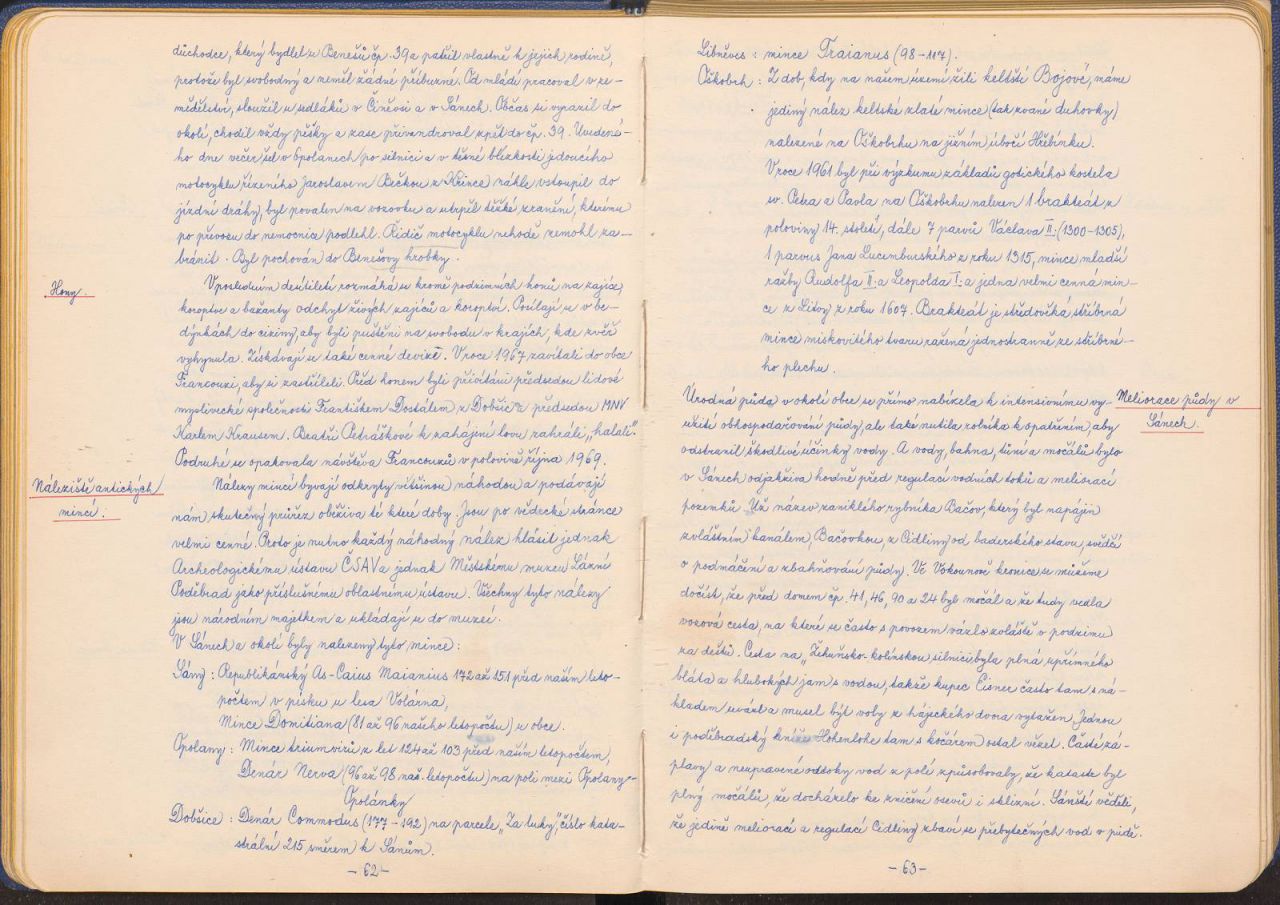 důchodce, který bydlel u Benešů čp. 39 a patřil vlastně k jejich rodině,
protože byl svobodný a neměl žádné příbuzné. Od mládí pracoval v ze-
mědělství, sloužil u sedláků v Činěvsi a v Sánech. Občas si vyrazil do
okolí, chodil vždy pěšky a zase přivandroval zpět do čp. 39. Uvedené-
ho dne večer šel v Opolanech po silnici a v těsné blízkosti jedoucího
motocyklu řízeného Jaroslavem Bečkou z Křince náhle vstoupil do
jízdní dráhy, byl povalen na vozovku a utrpěl těžké zranění, kterému
po převozu do nemocnia podlehl. Řidič motocyklu nehodě nemohl za-
bránit. Byl pochován do Benešovy hrobky.
Hony.
V posledním desítiletí rozmáhá se kromě podzimních honů na zajíce,
koroptve a bažanty odchyt živých zajíců a koroptví. Posílají se v be-
dýnkách do ciziny, aby byli puštěni na svobodu v krajích, kde zvěř
vyhynula. Získávají se také cenné devizi. V roce 1967 zavítali do obce
Francouzi, aby si zastříleli. Před honem byli přivítáni předsedou lidové
myslivecké společnosti Františkem Dostálem z Dobšic a předsedou MNV
Karlem Krausem. Bratři Petráškové k zahájení lovu zahráli „halali".
Podruhé se opakovala návštěva Francouzů v polovině října 1969.
Náleziště antických
mincí.
Nálezy mincí bývají odkryty většinou náhodou a podávají
nám skutečný průřez oběživa té které doby. Jsou po vědecké stránce
velmi cenné. Proto je nutno každý náhodný nález hlásit jednak
Archeologickému ústavu ČSAV a jednak Městskému muzeu Lázní
Poděbrad jako příslušnému oblastnímu ústavu. Všechny tyto nálezy
jsou národním majetkem a ukládají se do muzeí.
V Sánech a okolí byly nalezeny tyto mince:
Sány: Republikánský As-Caius Maianius 172 až 151 před naším leto-
počtem v písku u lesa Volárna,
Mince Domitiana (81 až 96 našeho letopočtu) u obce.
Opolany: Mince triumvirů z let 124 až 103 před naším letopočtem,
Denár Nerva (96 až 98 naš. letopočtu) na poli mezi Opolany-
Opolánky
Dobšice: Denár Commodus (177-192) na parcele „Za luky", číslo kata-
strální 215 směrem k Sánům.
- 62 -
Libněves: mince Traianus (98-117).
Oškobrh: Z dob, kdy na našem území žili keltští Bojové, máme
jediný nález keltské zlaté mince (tak zvané duhovky)
nalezené na Oškobrhu na jižním úbočí Hřebínku.
V roce 1961 byl při výzkumu základů gotického kostela
sv. Petra a Pavla na Oškobrhu nalezen 1 brakteát z
poloviny 14. století, dále 7 parvů Václava II. (1300-1305),
1 parvus Jana Lucemburského z roku 1315, mince mladší
ražby Rudolfa II. a Leopolda I. a jedna velmi cenná min-
ce z Litvy z roku 1607. Brakteát je středověká stříbrná
mince miskovitého tvaru ražená jednostranně ze stříbrné-
ho plechu.
Meliorace půdy v
Sánech.
Úrodná půda v okolí obce se přímo nabízela k intensivnímu vy-
užití obhospodařování půdy, ale také nutila rolníka k opatřením, aby
odstranil škodlivé účinky vody. A vody, bahna, tůní a močálů bylo
v Sánech odjakživa hodně před regulací vodních toků a meliorací
pozemků. Už název zaniklého rybníka Bačov, který byl napájen
zvláštním kanálem, Bačovkou, z Cidliny od baderského stavu, svědčí
o podmáčení a zbahňování půdy. Ve Vokounově kronice se můžeme
dočíst, že před domem čp. 41, 46, 90 a 24 byl močál a že tudy vedla
vozová cesta, na které se často s povozem vázlo zvláště v podzimu
za dešťů. Cesta na „Žehuňsko-kolínskou silnici byla plná upřímného
bláta a hlubokých jam s vodou, takže kupec Eisner často tam s ná-
kladem uvázl a musel být voby z hájeckého dvora vytažen. Jednou
i poděbradský kníže Hohenlohe tam s kočárem ostal vězet. Časté zá-
plavy a neupravené odtoky vod z polí způsobovaly, že kataste byl
plný močálů, že docházelo ke zničení osevů i sklizní. Sánští věděli,
že jedině meliorací a regulací Cidliny zbaví se přebytečných vod v půdě.
- 63 -